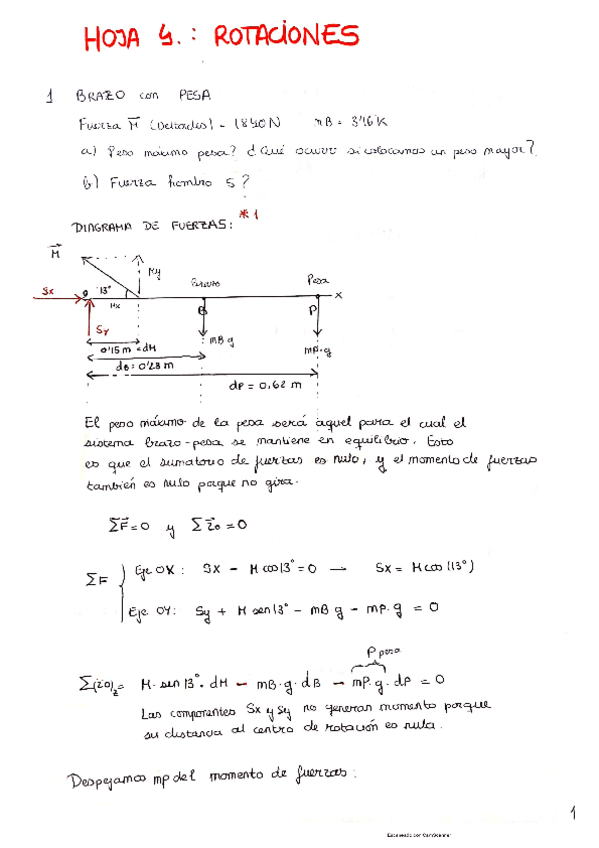 HOJA 4.: ROTACIONES
1 BRAZO con PESA
Fuerza M (Deltoides) = 1840N mB = 3'16 K
a) Peso máximo pesa? ¿Qué ocurre si colocamos un peso mayor?
b) Fuerza hombro S?
DIAGRAMA DE FUERZAS: *1
M
My
Pesa
Sx
0
13°
Mx
x
B
P
Sy
mB g
mP.g
0'15 m = dM
dB = 0'28 m
dP = 0,62 m
El peso máximo de la pesa será aquel para el cual el
sistema brazo-pesa se mantiene en equilibrio. Esto
es que el sumatorio de fuerzas es nulo, y el momento de fuerzas
también es nulo porque no gira.
ΣF = 0 y Στo = 0
ΣF { Eje OX: Sx - M cos 13° = 0 → Sx = M cos (13°)
Eje OY: Sy + M sen 13° - mB g - mP.g = 0
P pesa
Σ(τo)z = M. sen 13°. dM - mB.g.dB - mP.g.dP = 0
Las componentes Sx y Sy no generan momento porque
su distancia al centro de rotación es nula.
Despejamos mp del momento de fuerzas:
1
Escaneado con CamScanner